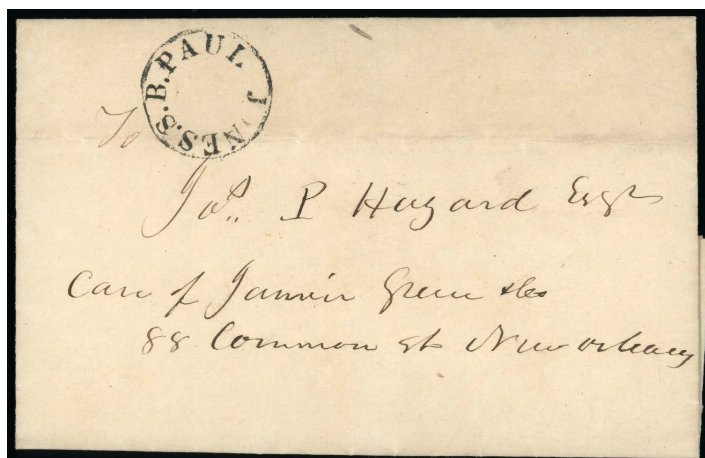 S.B. PAUL JONES.
To
Jos. P Hazard Esqr
Care of Jannin Green & Co
88 Common st New orleans